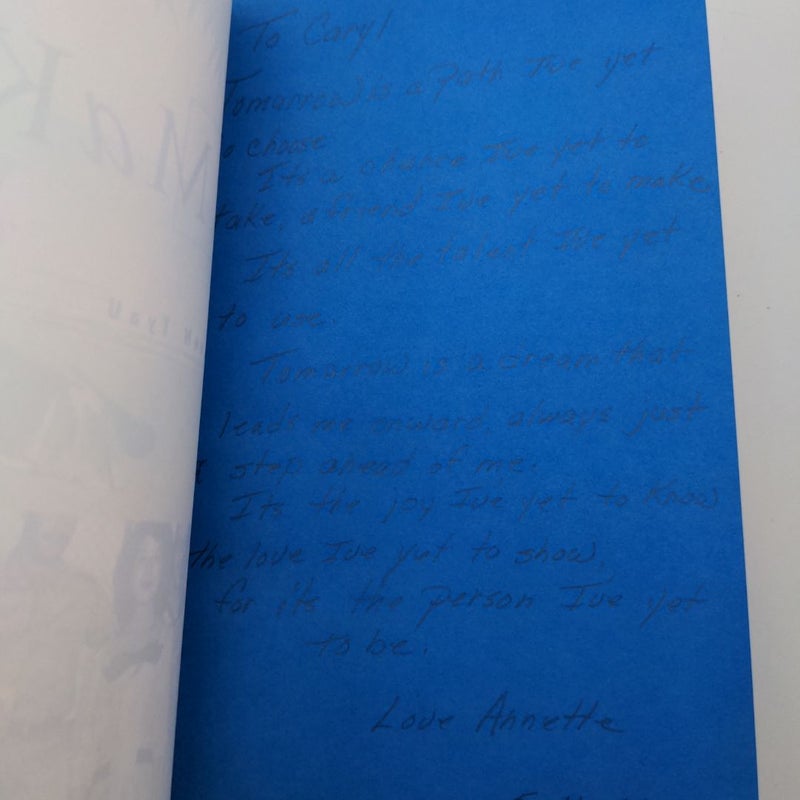 To Caryl
Tomorrow is a path I've yet
to choose
It's a chance I've yet to
take, a friend I've yet to make,
It's all the talent I've yet
to use.
Tomorrow is a dream that
leads me onward, always just
a step ahead of me.
It's the joy I've yet to know
the love I've yet to show,
for it's the person I've yet
to be.
Love Annette